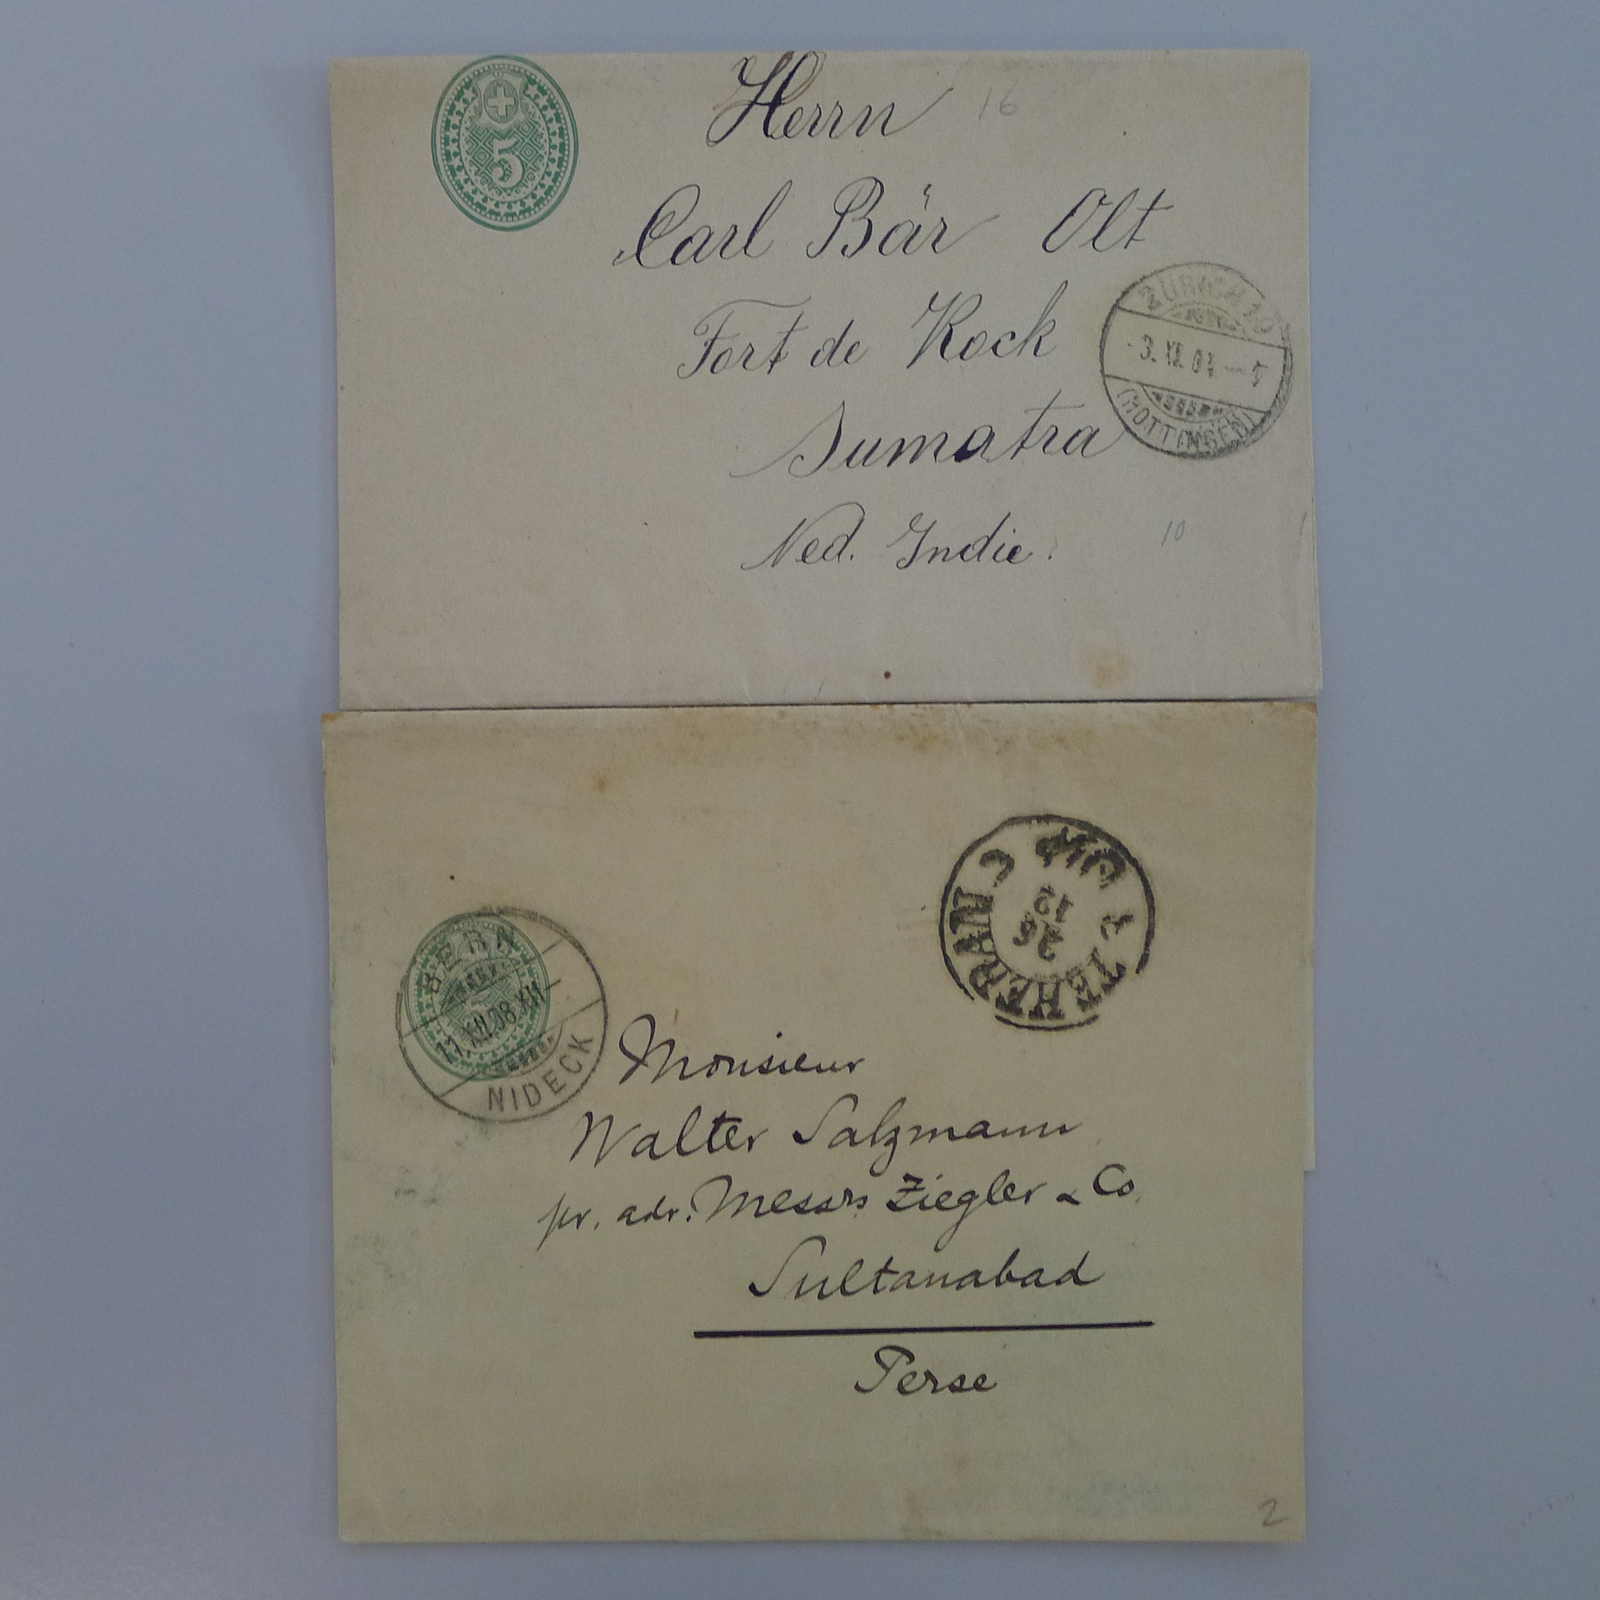 5
16
Herrn
Carl Bär Olt
Fort de Kock
Sumatra
Ned. Indie.
ZÜRICH 10
-3. XI. 04. – 5
(HOTTINGEN)
10
TEHERAN
26
12
BERN
11.XII.98.XII
NIDECK
Monsieur
Walter Salzmann
pr. adr. Messrs Ziegler & Co.
Sultanabad
Perse
2